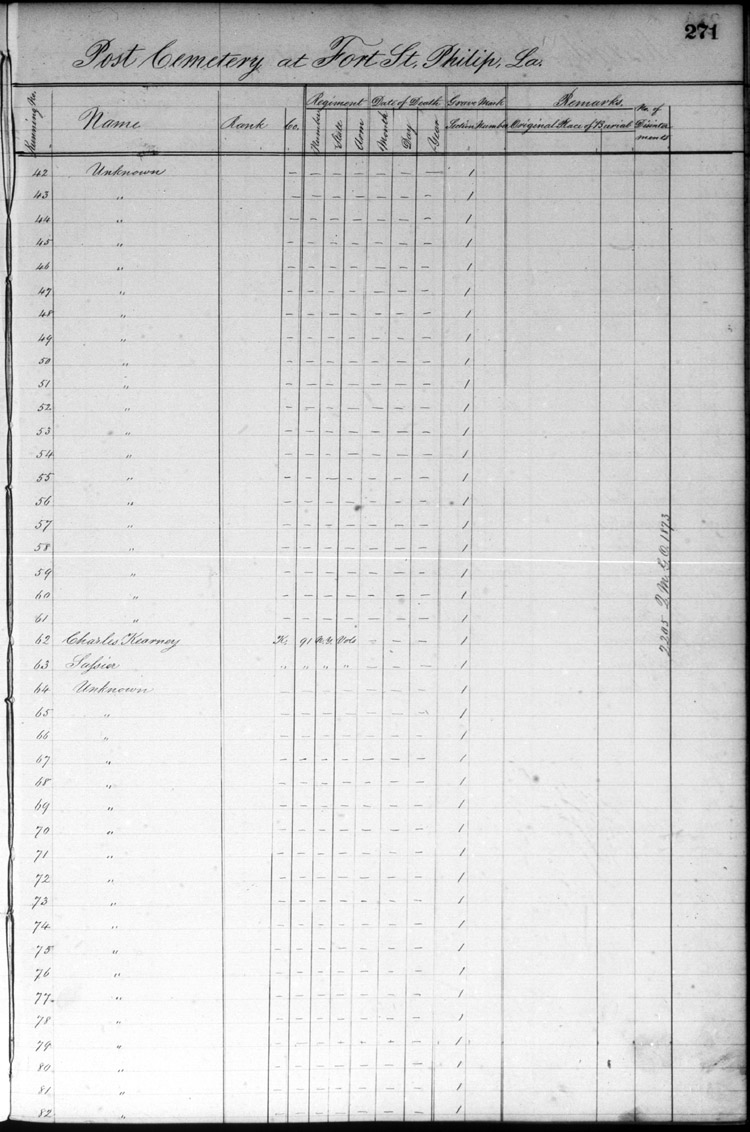 271
Post Cemetery at Fort St. Philip, La.
Running No. Name Rank Co. Regiment Date of Death. Grave Mark Remarks. No. of Disinterments
Number State Arm Month Day Year Section Number Original Place of Burial
42 Unknown — — — — — — — 1
43 " — — — — — — — 1
44 " — — — — — — — 1
45 " — — — — — — — 1
46 " — — — — — — — 1
47 " — — — — — — — 1
48 " — — — — — — — 1
49 " — — — — — — — 1
50 " — — — — — — — 1
51 " — — — — — — — 1
52 " — — — — — — — 1
53 " — — — — — — — 1
54 " — — — — — — — 1
55 " — — — — — — — 1
56 " — — — — — — — 1
57 " — — — — — — — 1
58 " — — — — — — — 1
59 " — — — — — — — 1
60 " — — — — — — — 1
61 " — — — — — — — 1
62 Charles Kearney K. 91 N.Y. Vols — — — 1
63 " " " " — — — 1
64 Unknown — — — — — — — 1
65 " — — — — — — — 1
66 " — — — — — — — 1
67 " — — — — — — — 1
68 " — — — — — — — 1
69 " — — — — — — — 1
70 " — — — — — — — 1
71 " — — — — — — — 1
72 " — — — — — — — 1
73 " — — — — — — — 1
74 " — — — — — — — 1
75 " — — — — — — — 1
76 " — — — — — — — 1
77 " — — — — — — — 1
78 " — — — — — — — 1
79 " — — — — — — — 1
80 " — — — — — — — 1
81 " — — — — — — — 1
82 " — — — — — — — 1
2205 Q.M.G.O. 1873